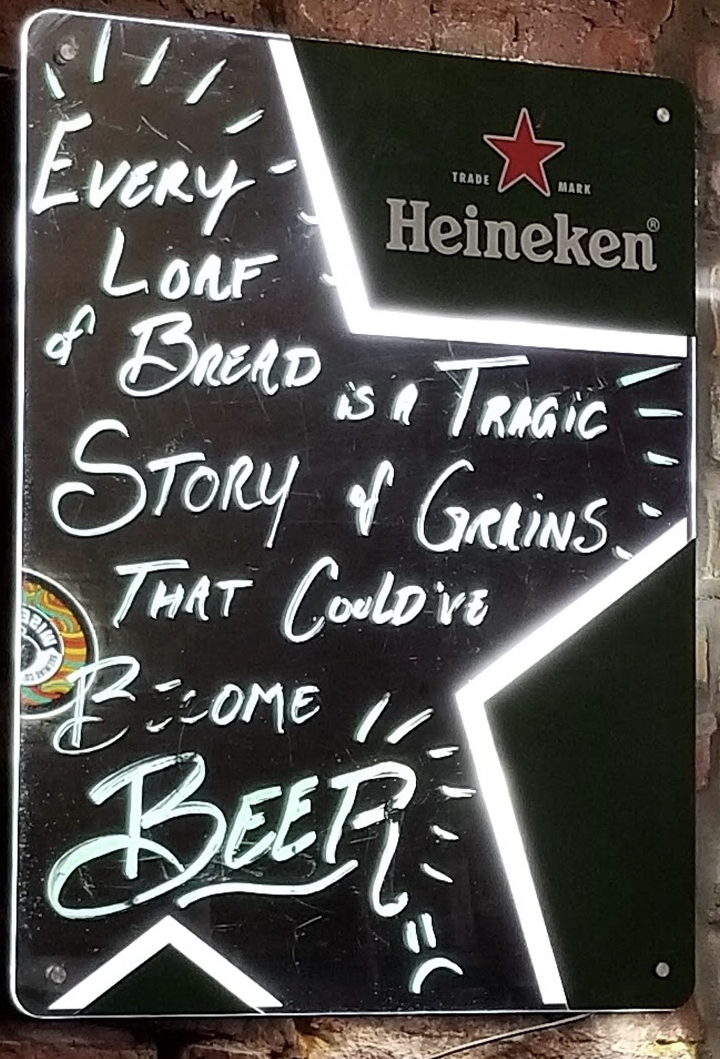 EVERY
LOAF
of BREAD is A TRAGIC
STORY of GRAINS
THAT COULD'VE
BECOME
BEER
TRADE MARK
Heineken®